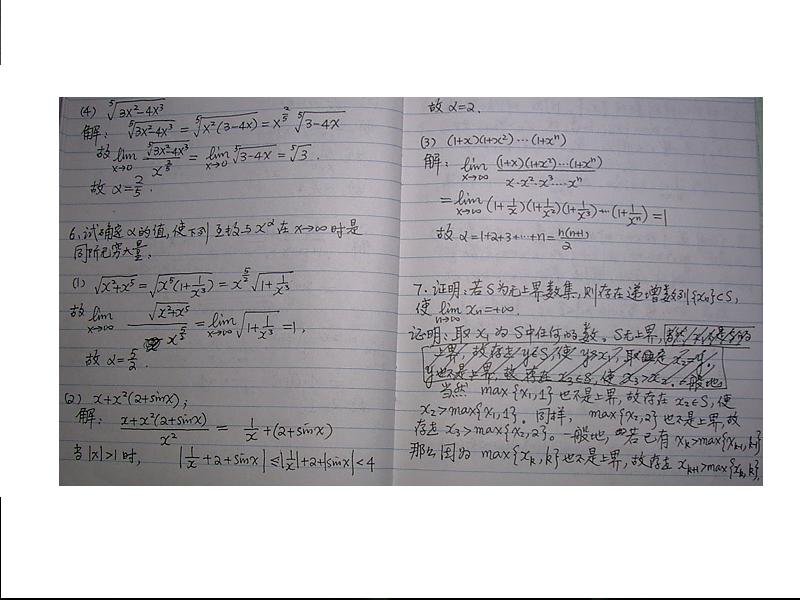 (4) ⁵√(3x²-4x³)
解: ⁵√(3x²-4x³) = ⁵√(x²(3-4x)) = x^(2/5) ⁵√(3-4x)
故 lim_{x→0} ⁵√(3x²-4x³) / x^(2/5) = lim_{x→0} ⁵√(3-4x) = ⁵√3.
故 α=2/5.
6. 试确定α的值, 使下列函数与x^α在x→∞时是
同阶无穷大量.
(1) √(x²+x⁵) = √(x⁵(1+1/x³)) = x^(5/2) √(1+1/x³)
故 lim_{x→∞} √(x²+x⁵) / x^(5/2) = lim_{x→∞} √(1+1/x³) = 1,
故 α=5/2.
(2) x+x²(2+sinx);
解: (x+x²(2+sinx)) / x² = 1/x+(2+sinx)
当|x|>1时, |1/x+2+sinx| ≤ |1/x|+2+|sinx| < 4
故 α=2.
(3) (1+x)(1+x²)…(1+xⁿ)
解: lim_{x→∞} (1+x)(1+x²)…(1+xⁿ) / x·x²·x³…xⁿ
= lim_{x→∞} (1+1/x)(1+1/x²)(1+1/x³)…(1+1/xⁿ) = 1
故 α=1+2+3+…+n = n(n+1)/2
7. 证明: 若S为无上界数集, 则存在递增数列{xₙ}⊂S,
使 lim_{n→∞} xₙ=+∞.
证明: 取x₁为S中任何的数。S无上界,
上界, 故存在y∈S, 使y>x₁, 取 x₂=y.
y也不是上界, 故存在x₃∈S, 使x₃>x₂. 一般地
当然 max{x₁,1}也不是上界, 故存在x₂∈S, 使
x₂>max{x₁,1}. 同样, max{x₂,2}也不是上界, 故
存在x₃>max{x₂,2}。一般地, 若已有xₖ>max{xₖ₋₁,k-1}
那么因为 max{xₖ,k}也不是上界, 故存在xₖ₊₁>max{xₖ,k},